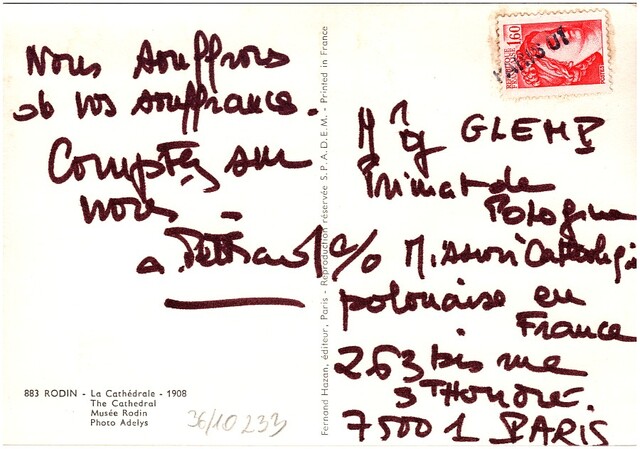 Nous souffrons
de vos souffrances.
Comptez sur
nous
883 RODIN - La Cathédrale - 1908
The Cathedral
Musée Rodin
Photo Adelys
36/10 233
Fernand Hazan, éditeur, Paris - Reproduction réservée S.P.A.D.E.M. - Printed in France
1,60
POSTES
PARIS 01
Mgr GLEMP
Primat de
Pologne
c/o M.
polonaise en
France
263 bis rue
St Honoré.
75001 PARIS